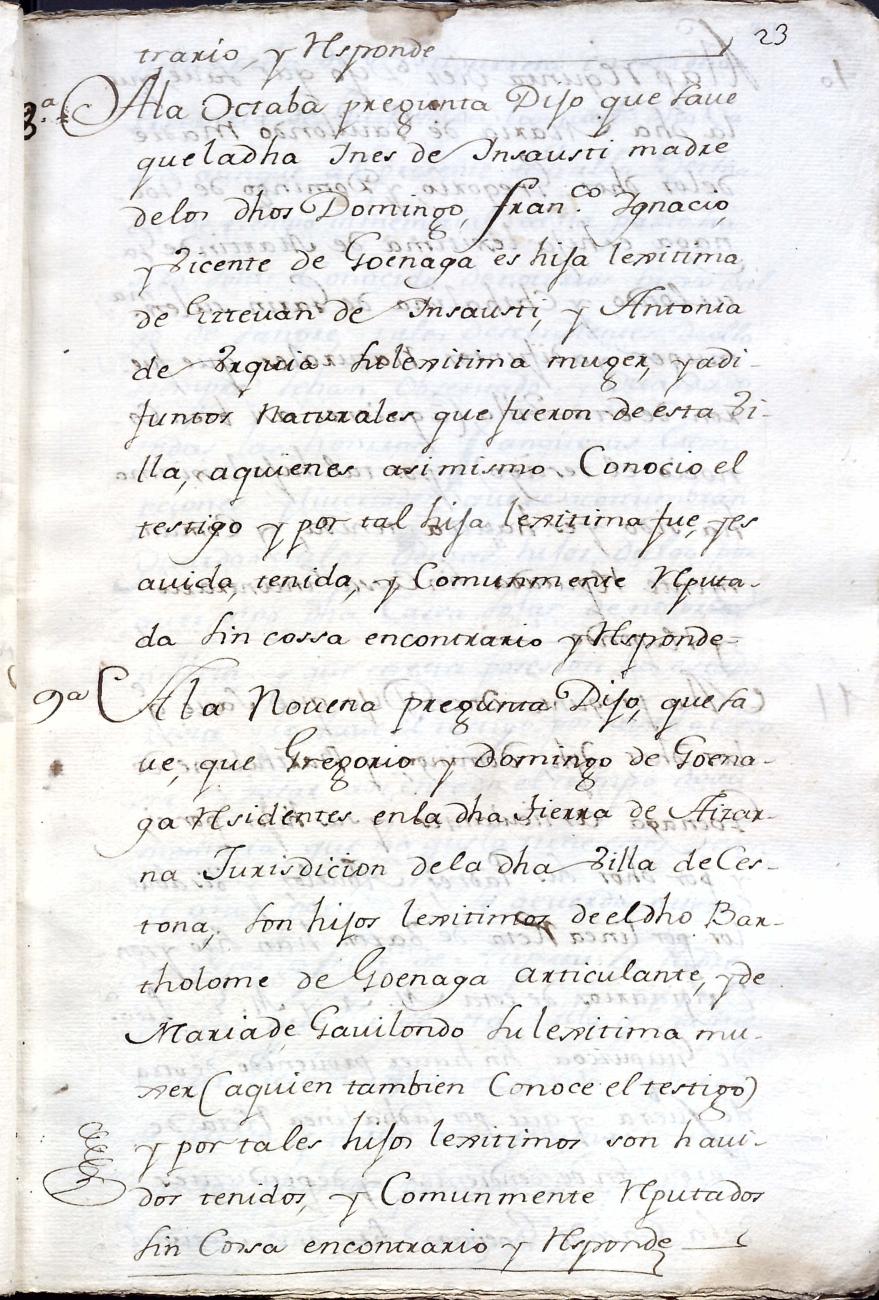 23
trario, y Responde
8.ª A la Octaba pregunta Dijo que save
que la dha Ines de Insausti madre
de los dhos Domingo, fran.co Ignacio,
y Vicente de Goenaga es hija lexitima
de Estevan de Insausti, y Antonia
de Urquia su lexitima muger, y adi-
juntos Naturales que fueron de esta Vi-
lla, aquienes asimismo Conocio el
testigo y por tal hija lexitima fue, y es
avida, tenida, y Comunmente Reputa-
da sin cossa encontrario y Responde=
9ª A la Novena pregunta Dijo, que sa
ve, que Gregorio y Domingo de Goena-
ga Residentes en la dha tierra de Aizar-
na Jurisdicion de la dha Villa de Ces-
tona, son hijos lexitimos de el dho Bar-
tholome de Goenaga articulante, y de
Maria de Gavilondo su lexitima mu-
xer (aquien tambien Conoce el testigo)
y por tales hijos lexitimos son havi-
dos tenidos, y Comunmente Reputados
sin Cossa encontrario y Responde